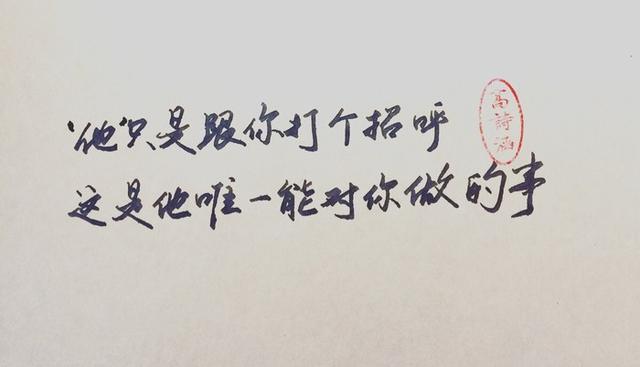 “他”只是跟你打个招呼
这是他唯一能对你做的事
高詩涵